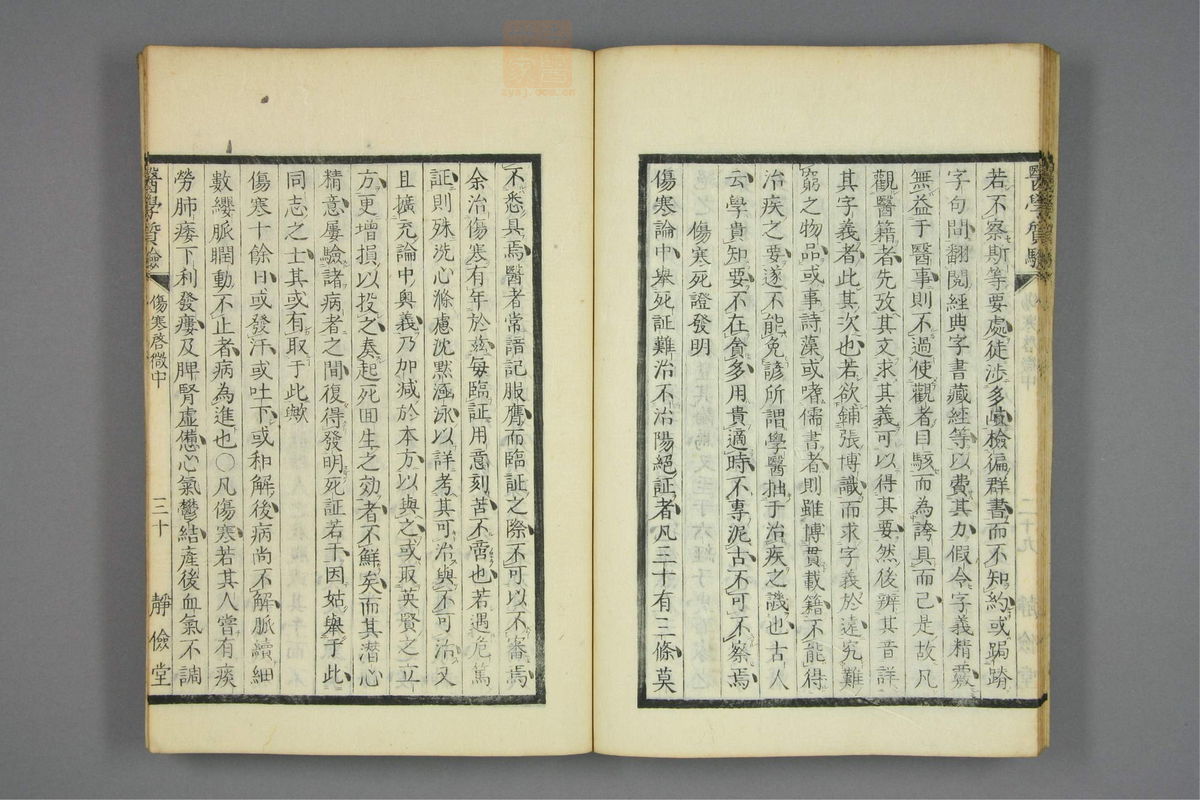 若不察斯等要處徒涉多岐檢徧群書而不知約或跼蹐
字句間翻閱經典字書藏經等以費其力假令字義精覈
無益于醫事則不過使觀者目駭而為誇具而已是故凡
觀醫籍者先攷其文求其義可以得其要然後辨其音詳
其字義者此其次也若欲鋪張博識而求字義於遠究難
窮之物品或事詩藻或嗜儒書者則雖博貫載籍不能得
治疾之要遂不能免諺所謂學醫拙于治疾之譏也古人
云學貴知要不在貪多用貴適時不專泥古不可不察焉
傷寒死證發明
傷寒論中舉死証難治不治陽絕証者凡三十有三條莫
不悉具焉醫者常諳記服膺而臨証之際不可以不審焉
余治傷寒有年於茲每臨証用意刻苦不啻也若遇危篤
証則殊洗心滌慮沈黙涵泳以詳考其可治與不可治又
且擴充論中奧義乃加減於本方以與之或取英賢之立
方更增損以投之奏起死回生之効者不鮮矣而其潜心
精意屢驗諸病者之間復得發明死証若干因姑舉于此
同志之士其或有取于此歟
傷寒十餘日或發汗或吐下或和解後病尚不解脈續細
數纓脈瞤動不止者病為進也〇凡傷寒若其人嘗有痰
勞肺痿下利發瘻及脾腎虛憊心氣鬱結產後血氣不調
醫學質驗
傷寒啓微中
三十
靜儉堂